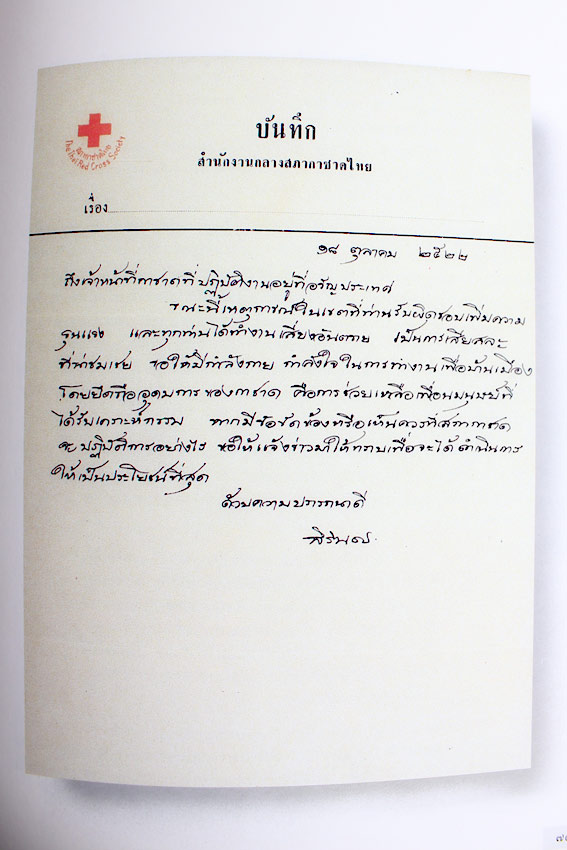 บันทึก
สภากาชาดไทย
The Thai Red Cross Society
สำนักงานกลางสภากาชาดไทย
เรื่อง
๑๘ ตุลาคม ๒๕๒๒
ถึงเจ้าหน้าที่กาชาดที่ปฏิบัติงานอยู่ที่อรัญประเทศ
ขณะนี้เหตุการณ์ในเขตที่ท่านรับผิดชอบเพิ่มความ
รุนแรง และทุกท่านได้ทำงานเสี่ยงอันตราย เป็นการเสียสละ
ที่น่าชมเชย ขอให้มีกำลังกาย กำลังใจในการทำงานเพื่อบ้านเมือง
โดยยึดถืออุดมการของกาชาด คือการช่วยเหลือเพื่อนมนุษย์ที่
ได้รับเคราะห์กรรม หากมีข้อขัดข้องหรือเห็นควรที่สภากาชาด
จะปฏิบัติการอย่างไร ขอให้แจ้งข่าวมาให้ทราบเพื่อจะได้ดำเนินการ
ให้เป็นประโยชน์ที่สุด
ด้วยความปรารถนาดี